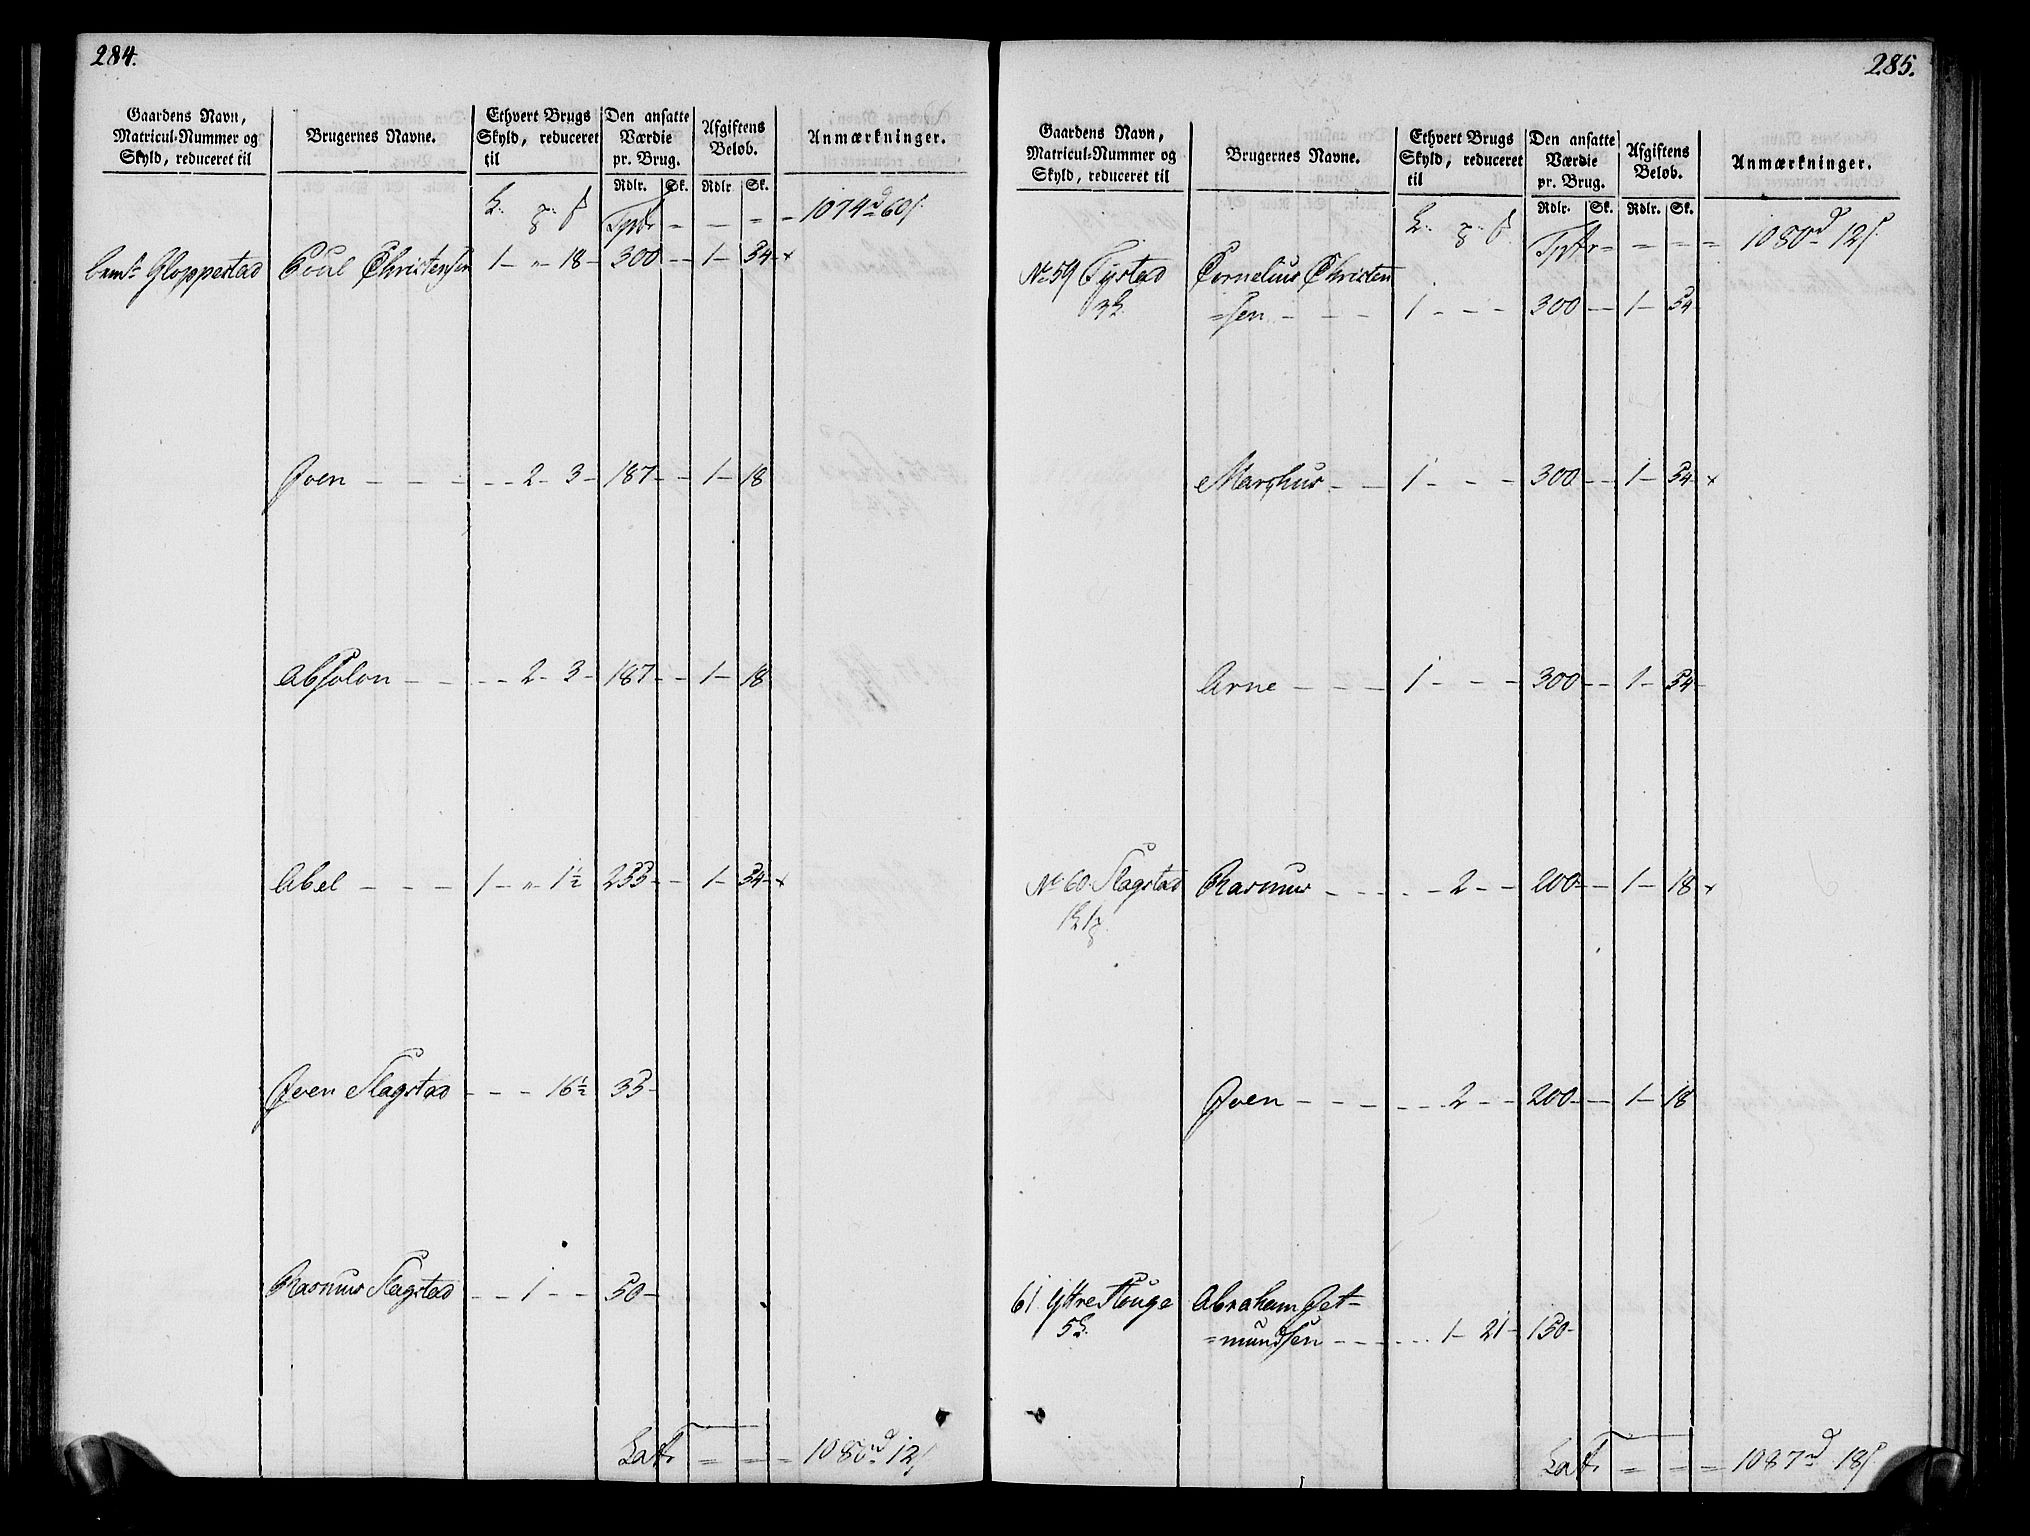 284.
Gaardens Navn, Matricul-Nummer og Skyld, reduceret til | Brugernes Navne. | Ethvert Brugs Skyld, reduceret til | Den ansatte Værdie pr. Brug. | Afgiftens Beløb. | Anmærkninger.
Rdlr. | Sk. | Rdlr | Sk.
Tptr - - - = - 1074d 60s
Gloppestad | Poul Christensen | 1 - " - 18 - | 300 - - | 1 - 54 - x
Øven - - - | - - 2 - 3 - | 187 - - | 1 - 18
Absolon - - | - - 2 - 3 - | 187 - - | 1 - 18
Abel - - - | 1 - " - 1½ | 255 - - | 1 - 54 - x
Øven Slagstad | - - - 16½ | 35 -
Rasmus Slagstad | - - 1 - - | 50 -
Latr = = = - 1080d 12s
285.
Gaardens Navn, Matricul-Nummer og Skyld, reduceret til | Brugernes Navne. | Ethvert Brugs Skyld, reduceret til | Den ansatte Værdie pr. Brug. | Afgiftens Beløb. | Anmærkninger.
Rdlr. | Sk. | Rdlr. | Sk.
Tptr = = = = = 1080d 12s
No 59 Tystad | Cornelius Christen
=sen - - - | 1 - - - | 300 - - | 1 - 54
Marchus - - | 1 - - - | 300 - - | 1 - 54 - x
Arne - - - | 1 - - - | 300 - - | 1 - 54 -
No 60 Slagstad | Rasmus - - - | - - 2 - - | 200 - - | 1 - 18 - x
Øven - - - | - - 2 - - | 200 - - | 1 - 18
61 Yttre Houge | Abraham Get-
=mundsen - - - | - - 1 - 21 - | 150 -
Latr = = = = 1087d 18s